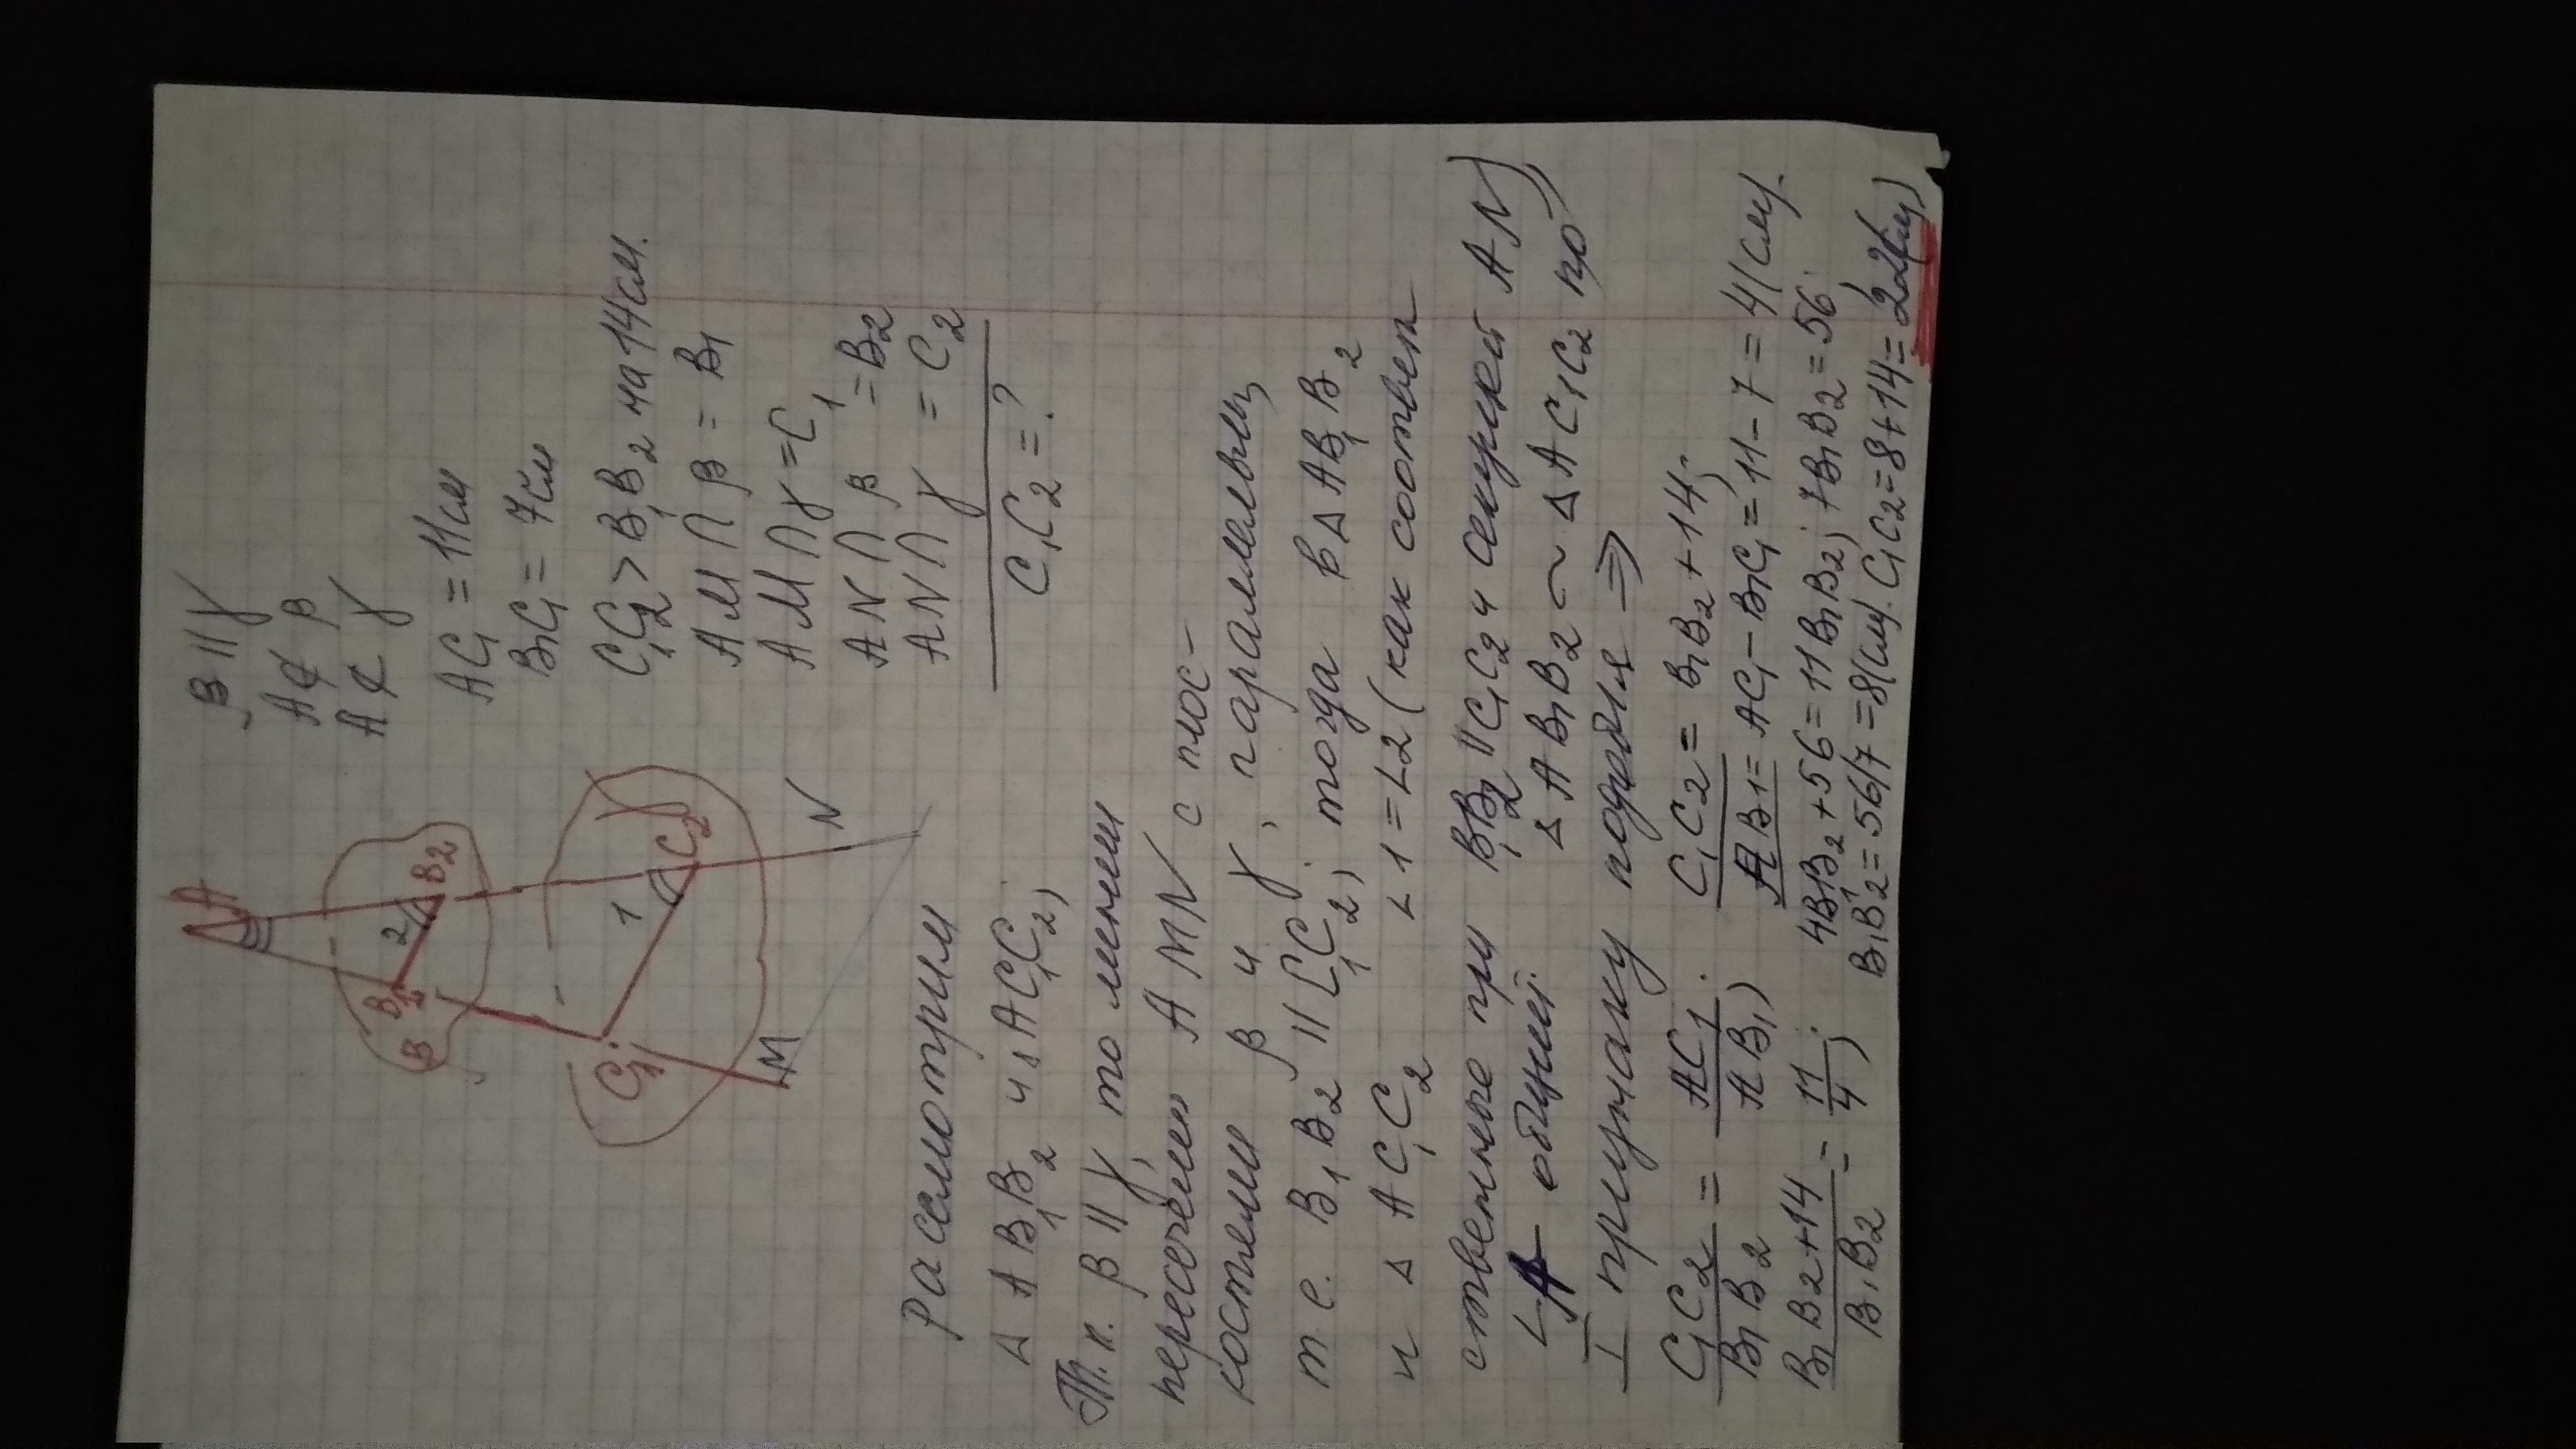 β || γ
A ⊄ β
A ⊄ γ
AC₁ = 11см
B₁C₁ = 7см
C₁C₂ > B₁B₂ на 14см.
AM ∩ β = B₁
AM ∩ γ = C₁
AN ∩ β = B₂
AN ∩ γ = C₂
C₁C₂ = ?
A
B₁
2
B₂
β
C₁
1
C₂
γ
M
N
Рассмотрим
△ AB₁B₂ и △ AC₁C₂,
Т.к. β || γ, то линии
пересечен AMN с плос-
костями β и γ, параллельны,
т е. B₁B₂ || C₁C₂, тогда в △ AB₁B₂
и △ AC₁C₂ ∠1 = ∠2 (как соответ
ственные при B₁B₂ || C₁C₂ и секущей AN)
∠A общий. △ AB₁B₂ ~ △ AC₁C₂ по
I признаку подобия ⇒
C₁C₂/B₁B₂ = AC₁/AB₁; C₁C₂ = B₁B₂ + 14;
AB₁ = AC₁ - B₁C₁ = 11 - 7 = 4(см).
B₁B₂+14/B₁B₂ = 11/4; 4B₁B₂ + 56 = 11B₁B₂; 7B₁B₂ = 56.
B₁B₂ = 56/7 = 8(см). C₁C₂ = 8 + 14 = 22(см)